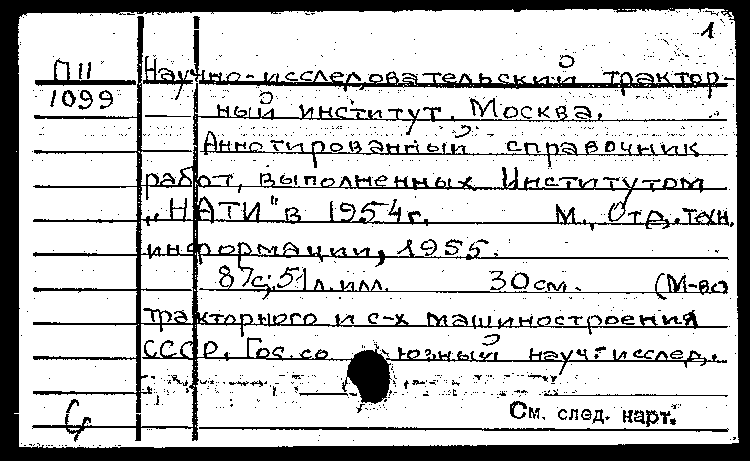 1
П11
1099
Научно-исследовательский трактор-
ный институт. Москва.
Аннотированный справочник
работ, выполненных Институтом
„НАТИ" в 1954г. М., Отд. техн.
информации, 1955.
87с; 51л. илл. 30см. (М-во
тракторного и с-х машиностроения
СССР. Гос. союзный науч-исслед.
См. след. карт.